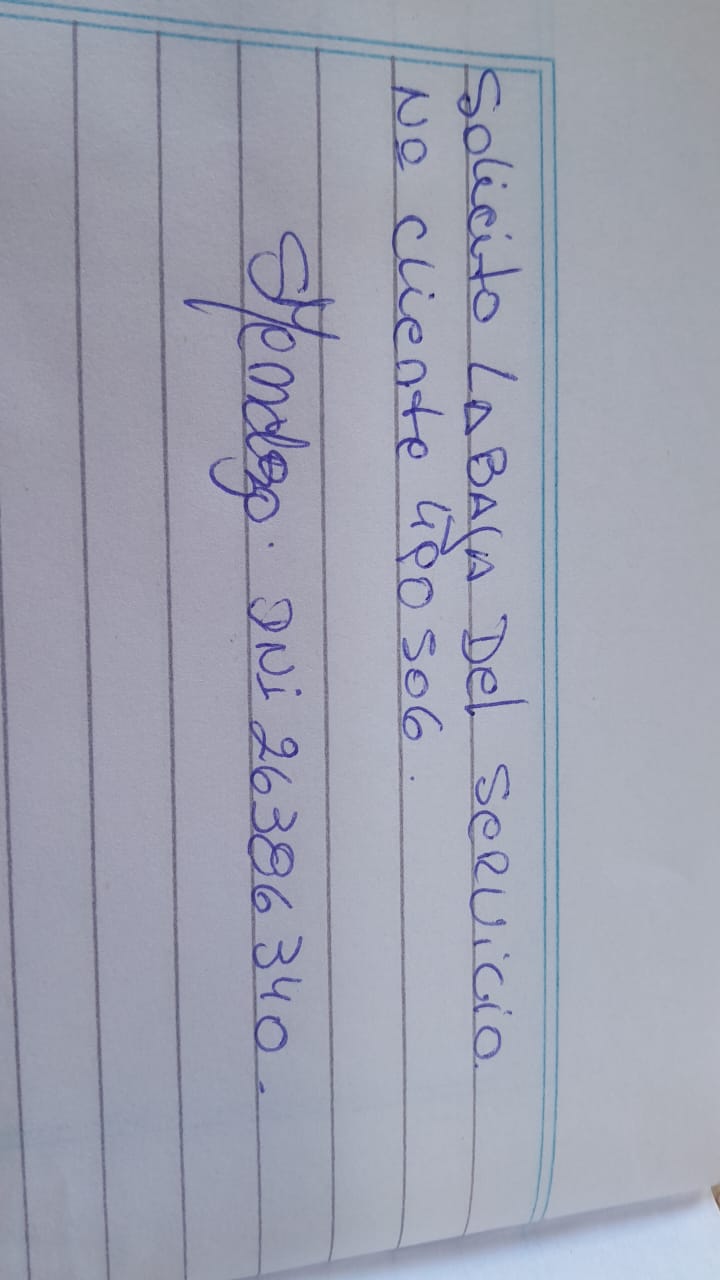 Solicito LA BAJA Del SeRVicio.
No cliente 490506.
DNi 26386340.